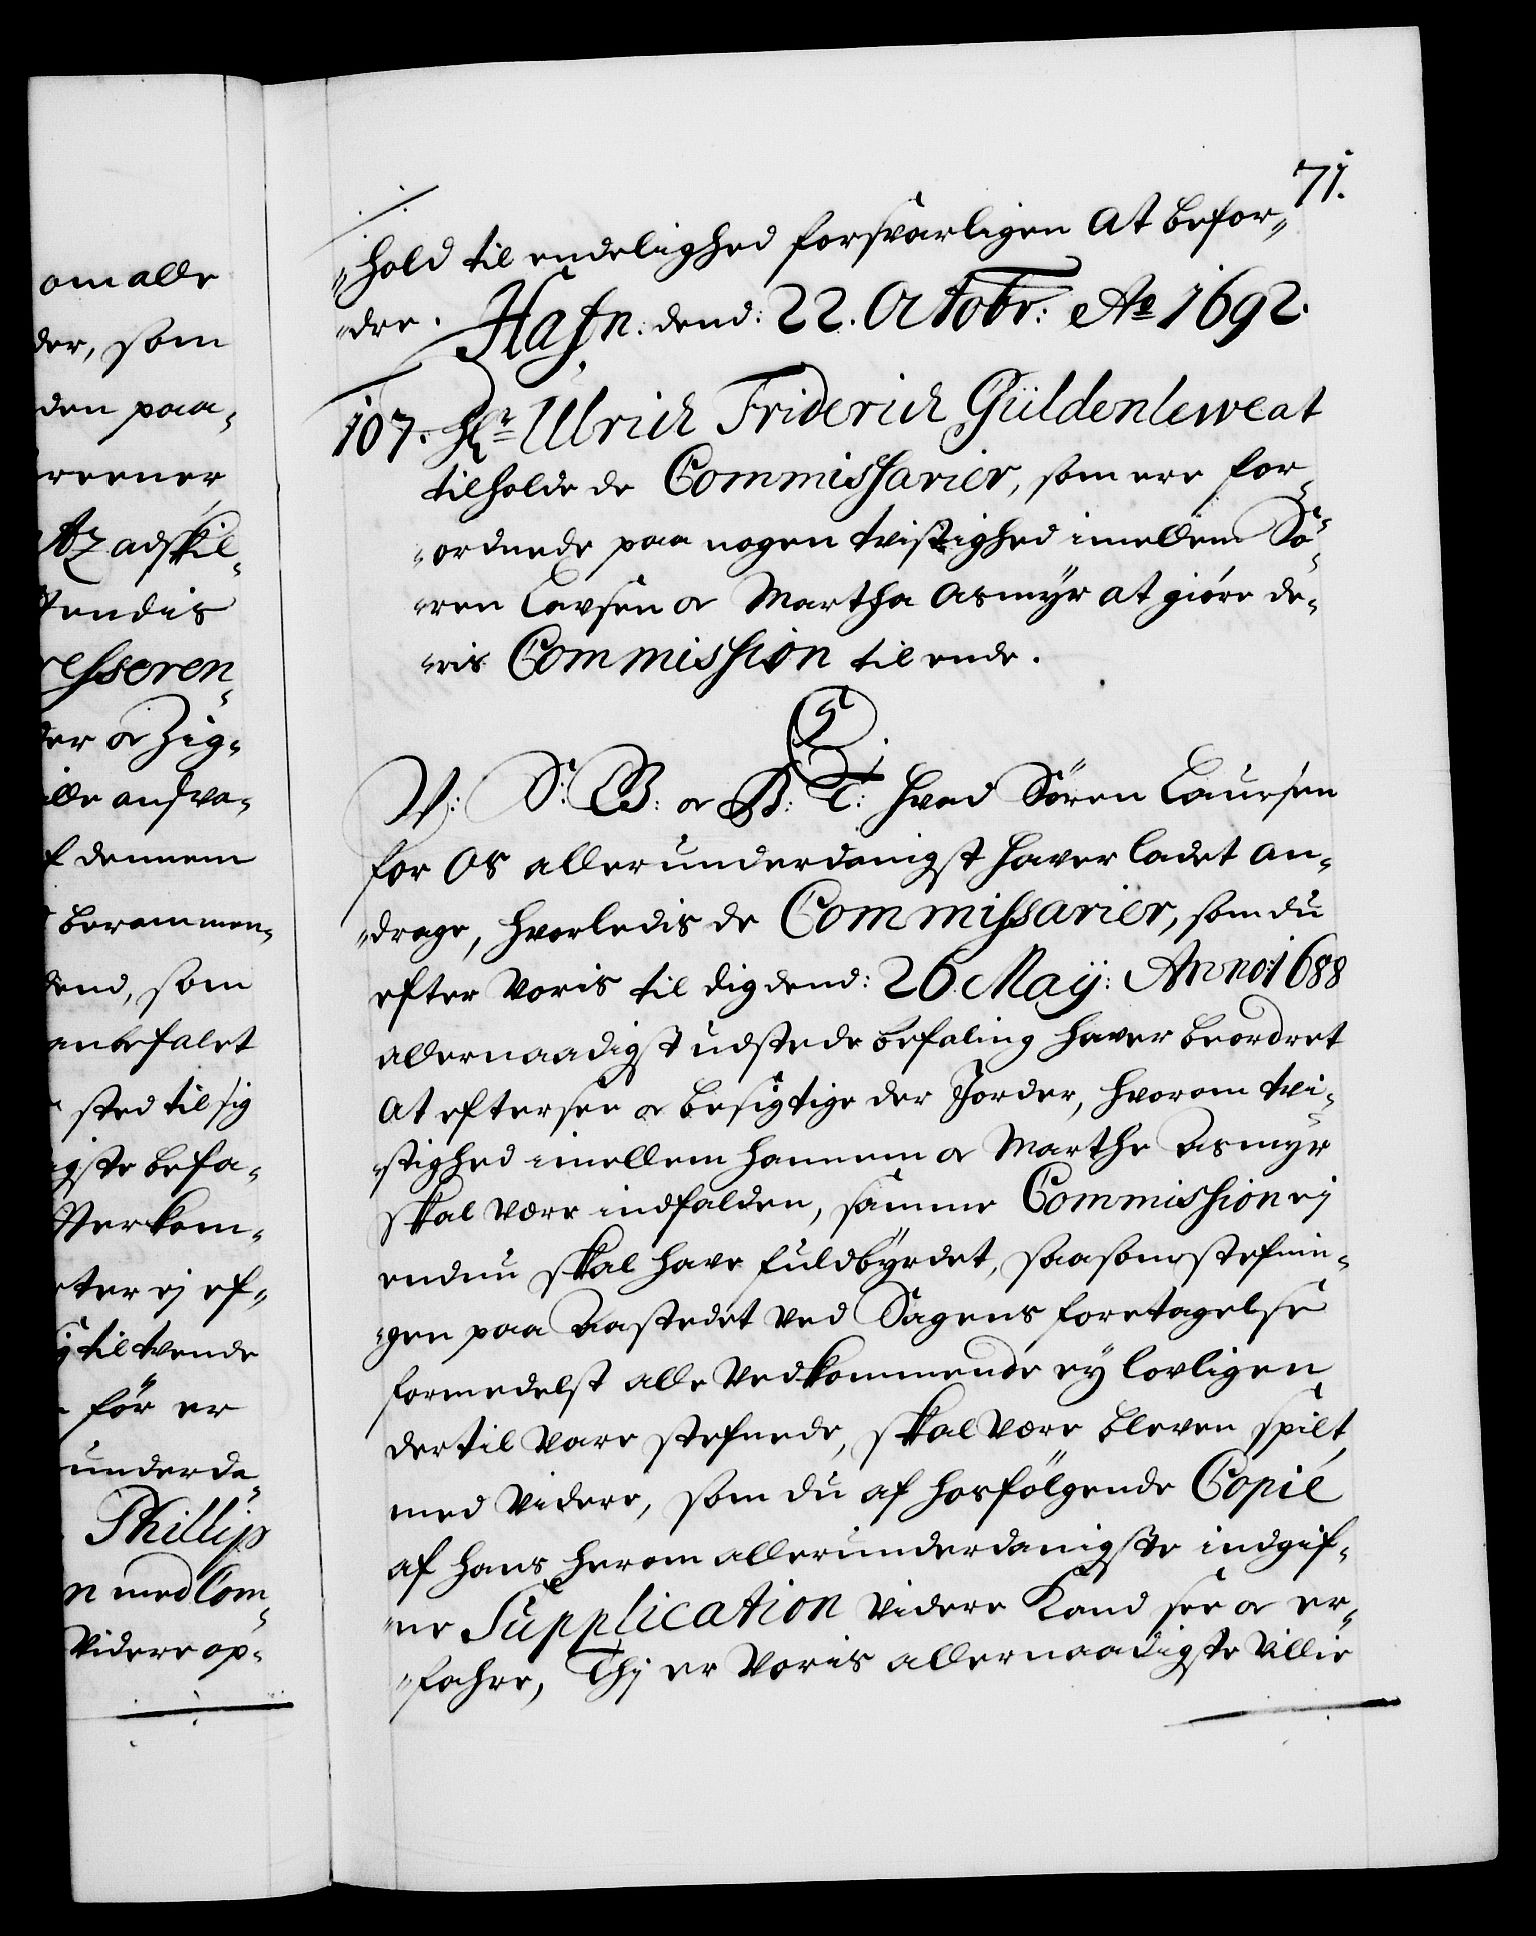 om alle
der, som
den paa-
reener
At adskil-
tendis
ressoren
der oc Zig-
ille ansva-
f dennem
berammen-
dend, som
anbefalet
sted til sig
igste befa-
Verkom-
ter ej ef-
til tvende
før er
underda-
Phillip
n med Com-
Videre op-
71.
"hold til endelighed forsvarligen At befor-
"dre. Hafn: dend: 22. Octobr: Ao 1692.
107. Hr Ulrich Friderich Güldenlewe at
tilholde de Commissarier, som ere for-
"ordnede paa nogen tvistighed imellem Sö-
"ren Lavsen oc Martha Asmÿr at giöre de-
"ris Commission til ende.
C5
V: S: G: B: oc B: T: Hvad Sören Laursen
for Os allerunderdanigst haver ladet an-
"drage, hvorledis de Commissarier, som du
efter Voris til dig dend: 26. Maÿ: Anno: 1688
allernaadigst udstede befaling haver beordret
At eftersee oc besigtige der Jorder, hvorom tvi-
"stighed imellem hannem oc Marthe Aasmÿr
skal være indfalden, samme Commission ej
endnu skal have fuldbÿrdet, saasom stefnin-
"gen paa Aastedet ved Sagens foretagelse
formedelst alle Vedkommende eÿ lovligen
dertil vare stefnede, skal være bleven spilt,
med videre, som du af hosfölgende Copie
af hans herom allerunderdanigste indgif-
"ne Supplication videre Kand see oc er-
"fahre, Thj er Voris allernaadigste Villie